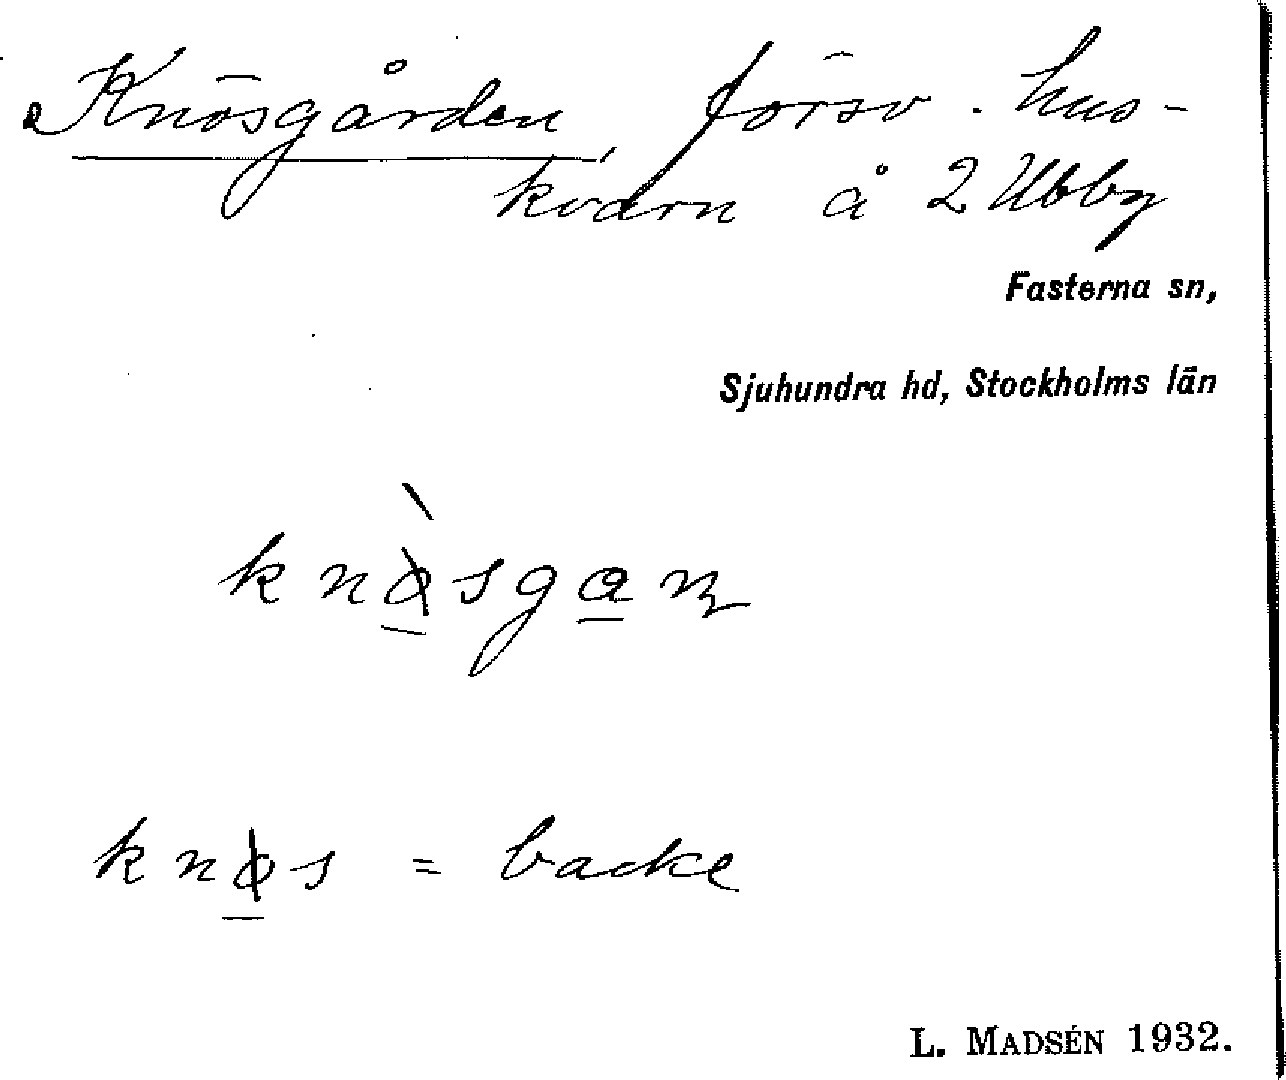 Knösgården, försv. hus-
kvarn å 2 Ubby
Fasterna sn,
Sjuhundra hd, Stockholms län
knø̀sgan
knøs = backe
L. MADSÉN 1932.